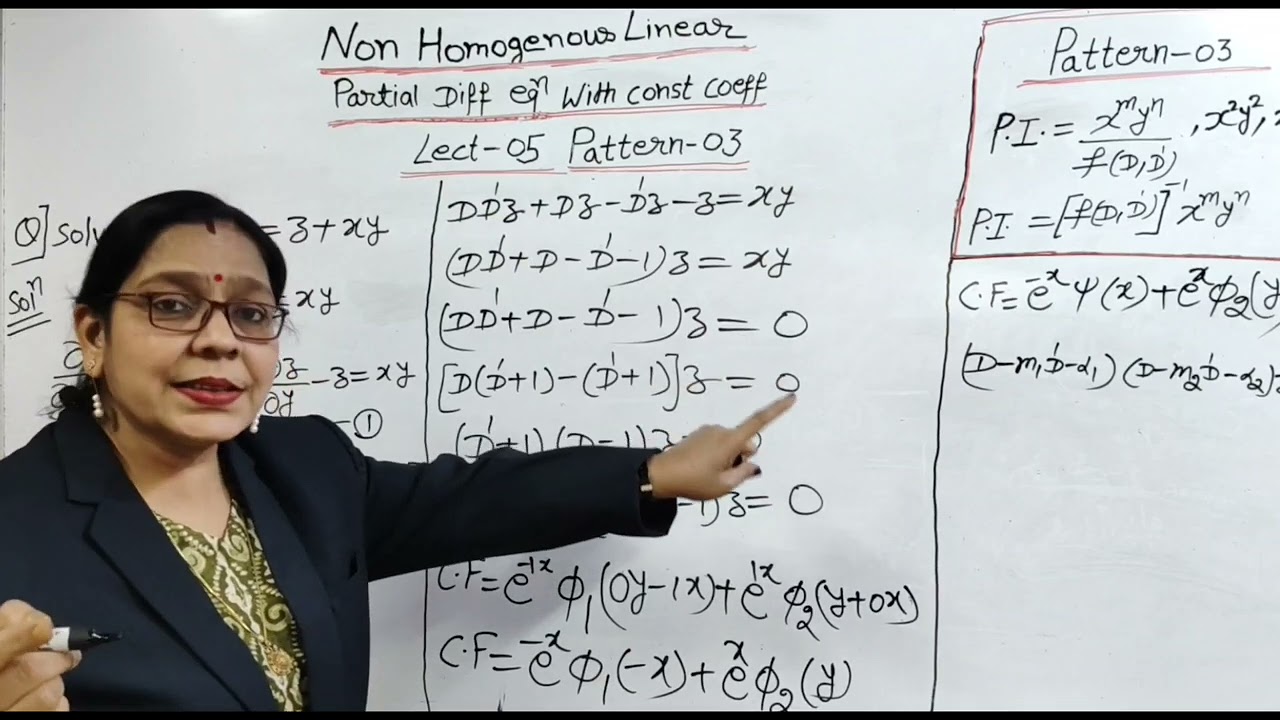 Non Homogenous Linear
Partial Diff eqⁿ With const coeff
Lect-05 Pattern-03
Q] Solv = z + xy
Solⁿ = xy
∂z/∂y - z = xy
-①
DD'z + Dz - D'z - z = xy
(DD' + D - D' - 1)z = xy
(DD' + D - D' - 1)z = 0
[D(D'+1) - (D'+1)]z = 0
(D'+1)(D-1)z
-1)z = 0
C.F = e^-1x ϕ₁(0y-1x) + e^1x ϕ₂(y+0x)
C.F = e^-x ϕ₁(-x) + e^x ϕ₂(y)
Pattern-03
P.I. = x^m y^n / f(D,D') , x²y²,
P.I. = [f(D,D')]^-1 x^m y^n
C.F = e^-x ψ(x) + e^x ϕ₂(y
(D-m₁D'-α₁)(D-m₂D'-α₂)